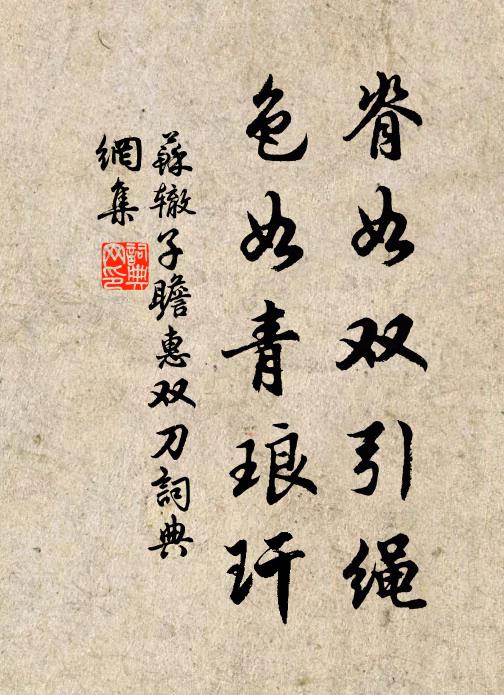 脊如双引绳
色如青琅玕
蘇辙子瞻惠双刀詞典
網集
詞典网印